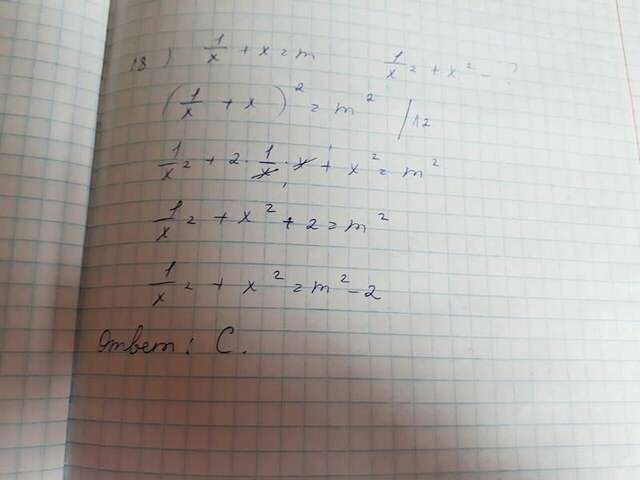 18) 1/x + x = m 1/x² + x² - ?
(1/x + x)² = m² /^2
1/x² + 2 · 1/x · x + x² = m²
1/x² + x² + 2 = m²
1/x² + x² = m² - 2
Ответ: С.